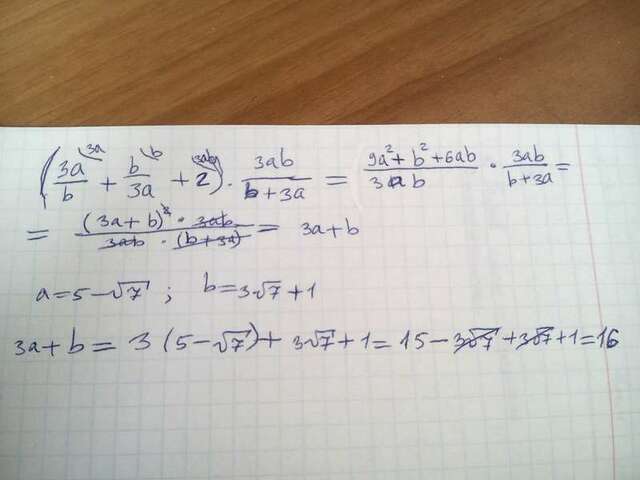 (3a/b ^3a + b/3a ^b + 2 ^3ab) · 3ab/(b+3a) = (9a²+b²+6ab)/(3ab) · 3ab/(b+3a) =
= ((3a+b)² · 3ab)/(3ab · (b+3a)) = 3a+b
a=5-√7 ; b=3√7+1
3a+b = 3(5-√7)+3√7+1=15-3√7+3√7+1=16